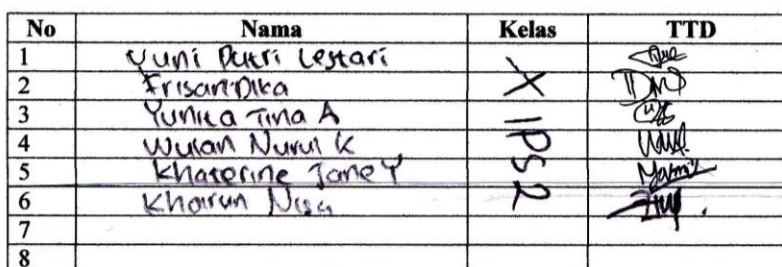 No Nama Kelas TTD
1 Yuni Putri Lestari
2 Frisan Dika
3 Yunita Tina A
4 Wulan Nurul K
5 Khaterine Jane Y
6 Khoirun Nisa
7
8
X IPS 2